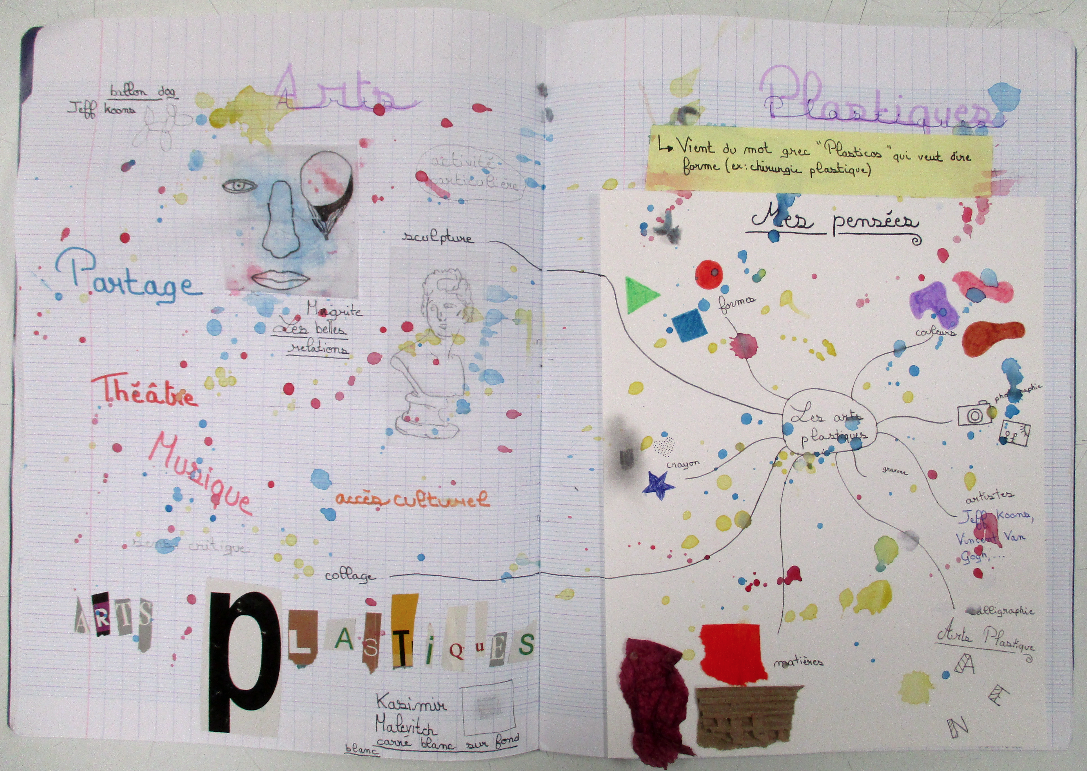 Arts
ballon dog
Jeff Koons
activité
particulière
sculpture
Partage
Magrite
Les belles
relations
Théâtre
Musique
accès culturel
sens critique
collage
ARTS
PLASTiQuES
Kasimir
Malevitch
carré blanc sur fond
blanc
Plastiques
↳ Vient du mot grec "Plasticos" qui veut dire
forme (ex: chirurgie plastique)
Mes pensées
formes
couleurs
photographie
Les arts
plastiques
crayon
gravure
artistes
Jeff Koons,
Vincent Van
Gogh...
calligraphie
Arts Plastique
matières
A
E
N